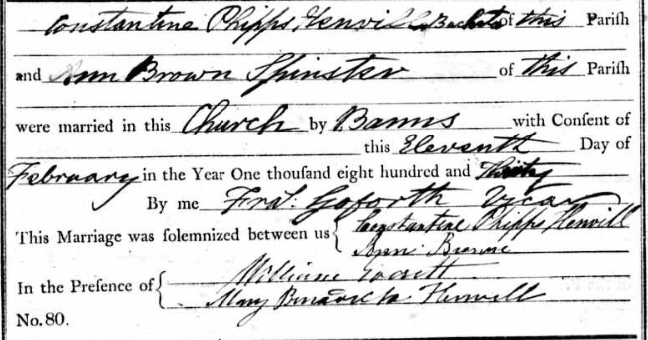 Constantine Phipps Henvill Bachelor of this Parish
and Ann Brown Spinster of this Parish
were married in this Church by Banns with Consent of
this Eleventh Day of
February in the Year One thousand eight hundred and Thirty
By me Fras. Goforth Vicar
This Marriage was solemnized between us { Constantine Phipps Henvill
Ann Browne
In the Presence of { William
Mary Henvill
No. 80.